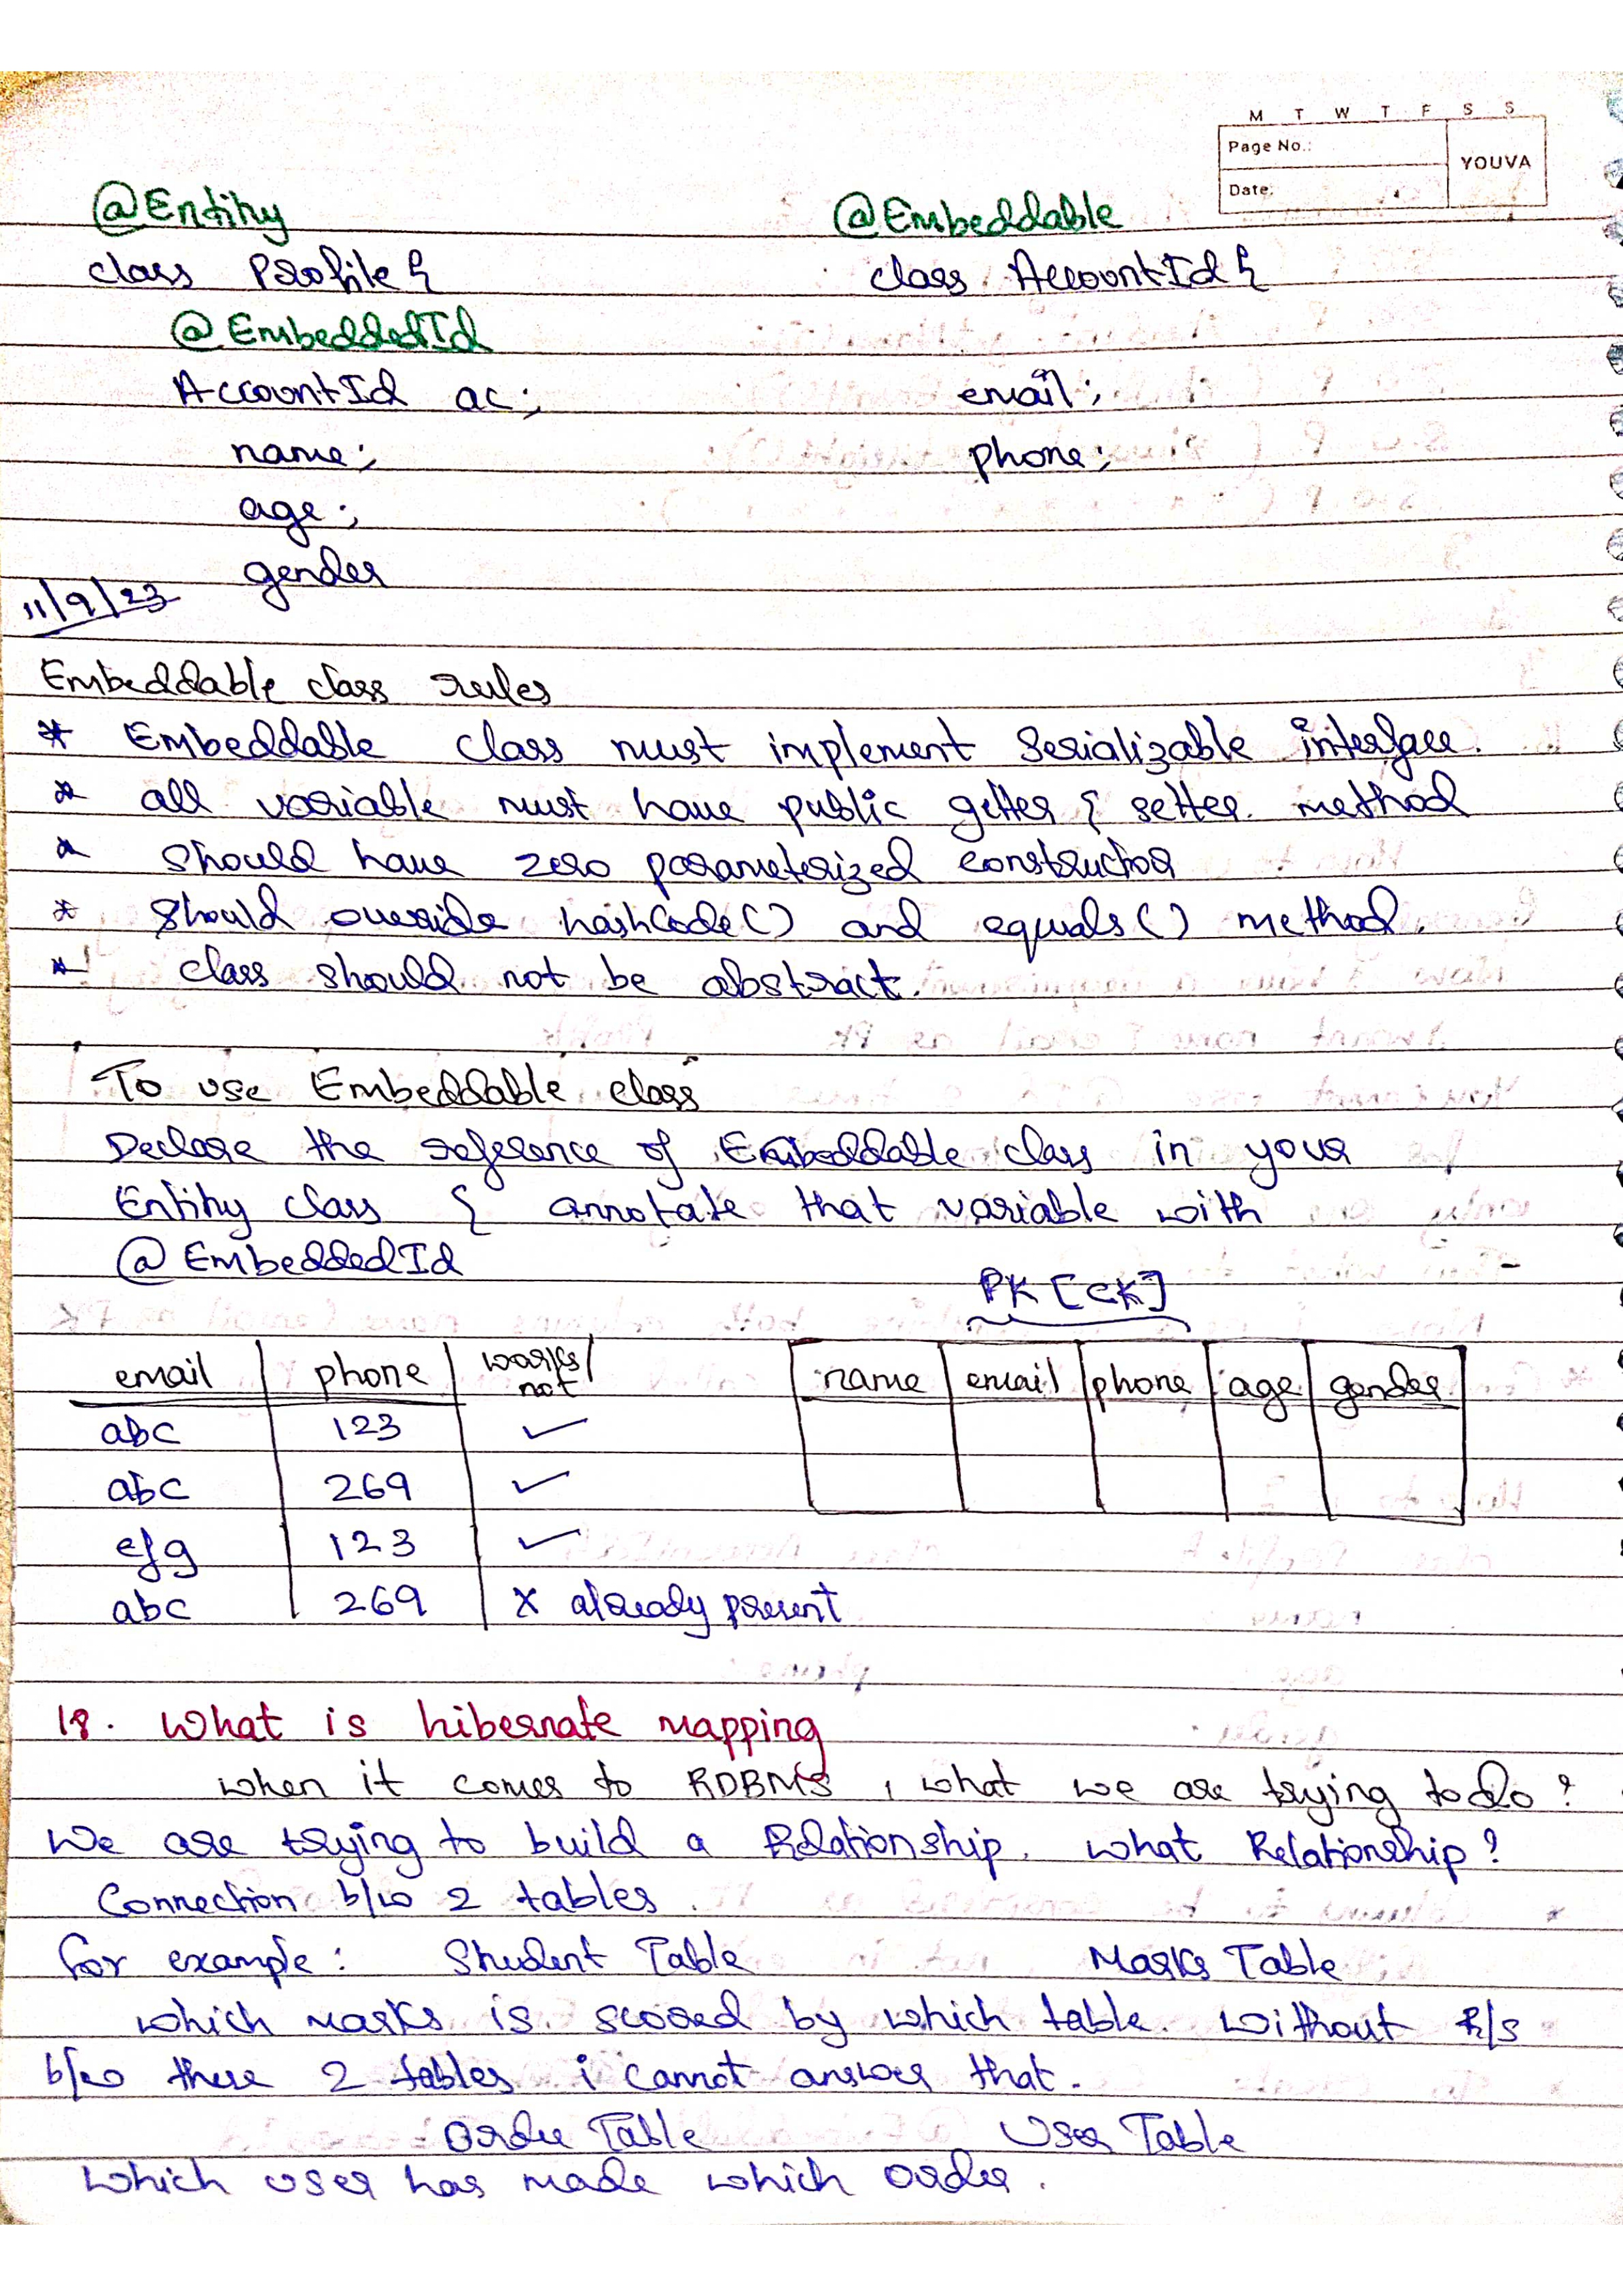 M T W T F S S
Page No.:
YOUVA
Date:
@Entity @Embeddable
class Profile { class AccountId {
@EmbeddedId
AccountId ac; email;
name; phone;
age;
gender
11/9/23
Embeddable class rules
* Embeddable class must implement Serializable interface.
* all variable must have public getter & setter method
* should have zero parameterized constructor
* should override hashCode() and equals() method.
* class should not be abstract.
To use Embeddable class
Declare the reference of Embeddable class in your
Entity class & annotate that variable with
@EmbeddedId
PK [CK]
email phone works/not
name email phone age gender
abc 123 ✓
abc 269 ✓
efg 123 ✓
abc 269 x already present
18. What is hibernate mapping
when it comes to RDBMS, what we are trying to do?
We are trying to build a Relationship. what Relationship?
Connection b/w 2 tables.
for example: Student Table Marks Table
which marks is scored by which table. without R/s
b/w these 2 tables i cannot answer that.
Order Table User Table
which user has made which order.